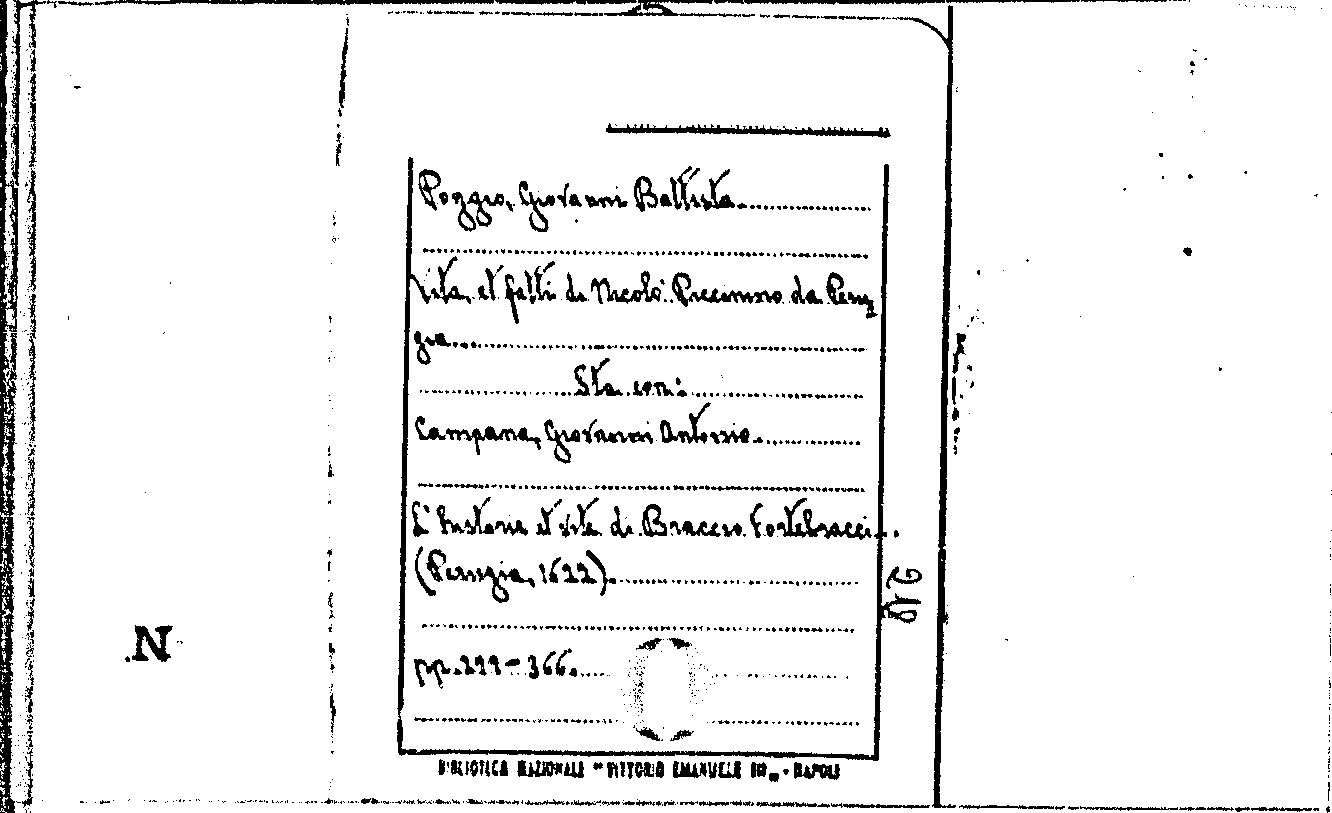 Poggio, Giovanni Battista
Vita, et fatti di Nicolò Piccinino da Peru=
gia
Sta con:
Campana, Giovanni Antonio
L'historia et vite di Braccio Fortebracci..
(Perugia, 1622).
pp.
N
BIBLIOTECA NAZIONALE "VITTORIO EMANUELE III" - NAPOLI